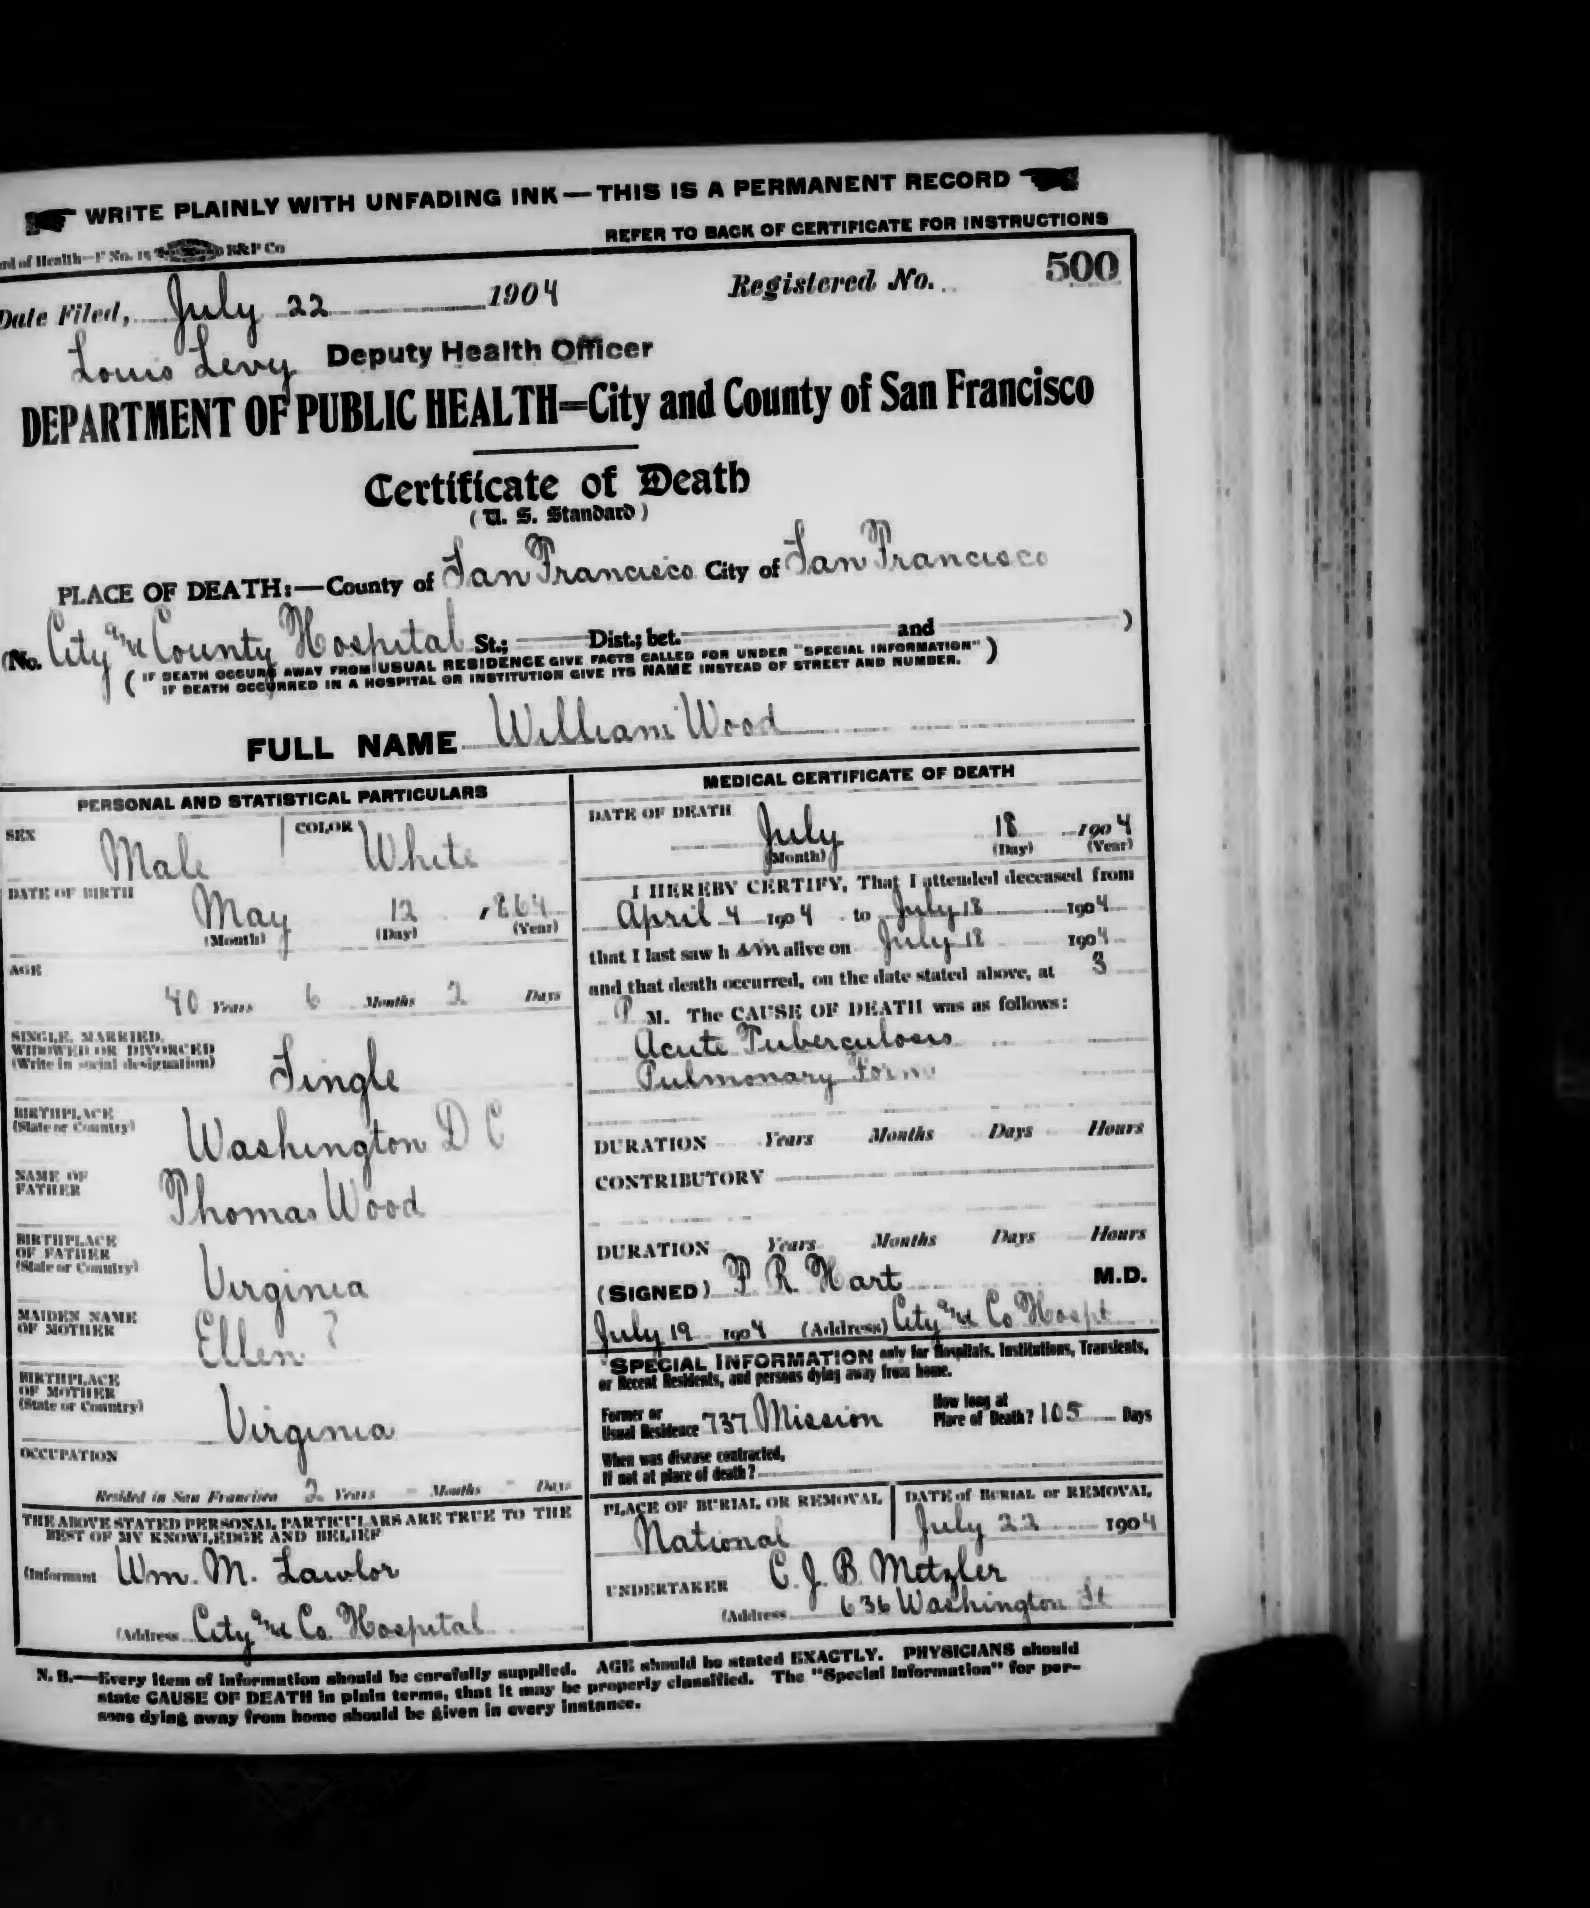 WRITE PLAINLY WITH UNFADING INK — THIS IS A PERMANENT RECORD
REFER TO BACK OF CERTIFICATE FOR INSTRUCTIONS
rd of Health—F No. 15 B&P Co
Date Filed, July 22 1904 Registered No. 500
Louis Levy Deputy Health Officer
DEPARTMENT OF PUBLIC HEALTH=City and County of San Francisco
Certificate of Death
(U. S. Standard)
PLACE OF DEATH:—County of San Francisco City of San Francisco
(No. City and County Hospital St.; Dist.; bet. and )
( IF DEATH OCCURS AWAY FROM USUAL RESIDENCE GIVE FACTS CALLED FOR UNDER "SPECIAL INFORMATION" )
IF DEATH OCCURRED IN A HOSPITAL OR INSTITUTION GIVE ITS NAME INSTEAD OF STREET AND NUMBER.
FULL NAME William Wood
PERSONAL AND STATISTICAL PARTICULARS
SEX Male COLOR White
DATE OF BIRTH
May 12 1864
(Month) (Day) (Year)
AGE
40 Years 6 Months 2 Days
SINGLE, MARRIED,
WIDOWED OR DIVORCED
(Write in social designation) Single
BIRTHPLACE
(State or Country) Washington D C
NAME OF
FATHER Thomas Wood
BIRTHPLACE
OF FATHER
(State or Country) Virginia
MAIDEN NAME
OF MOTHER Ellen ?
BIRTHPLACE
OF MOTHER
(State or Country) Virginia
OCCUPATION
Resided in San Francisco 2 Years - Months - Days
THE ABOVE STATED PERSONAL PARTICULARS ARE TRUE TO THE
BEST OF MY KNOWLEDGE AND BELIEF
(Informant Wm. M. Lawlor
(Address City and Co. Hospital
MEDICAL CERTIFICATE OF DEATH
DATE OF DEATH
July 18 1904
(Month) (Day) (Year)
I HEREBY CERTIFY, That I attended deceased from
April 4 1904 to July 18 1904
that I last saw h im alive on July 18 1904
and that death occurred, on the date stated above, at 3
P M. The CAUSE OF DEATH was as follows:
Acute Tuberculosis
Pulmonary Form
DURATION Years Months Days Hours
CONTRIBUTORY
DURATION Years Months Days Hours
(SIGNED) P. R. Hart M.D.
July 19 1904 (Address) City and Co Hospt
SPECIAL INFORMATION only for Hospitals, Institutions, Transients,
or Recent Residents, and persons dying away from home.
Former or
Usual Residence 737 Mission
How long at
Place of Death? 105 Days
When was disease contracted,
If not at place of death?
PLACE OF BURIAL OR REMOVAL
National
DATE of BURIAL or REMOVAL
July 22 1904
UNDERTAKER C. J. B. Metzler
(Address 636 Washington St
N. B.—Every item of information should be carefully supplied. AGE should be stated EXACTLY. PHYSICIANS should
state CAUSE OF DEATH in plain terms, that it may be properly classified. The "Special Information" for per-
sons dying away from home should be given in every instance.